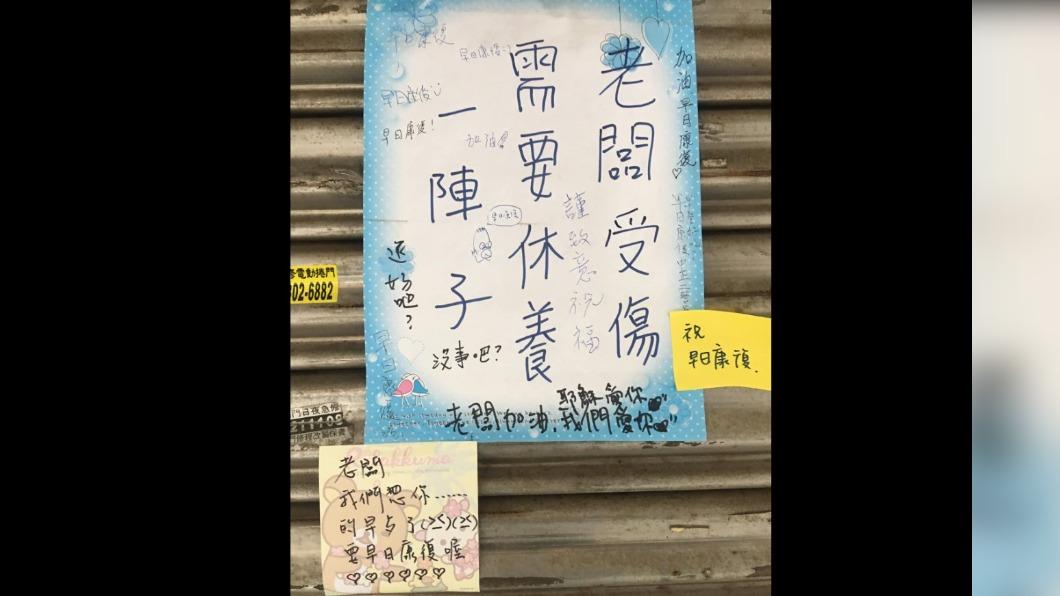 老闆受傷
需要休養
一陣子
加油早日康復♡
早日康復
早日康復！
加油
謹致意祝福
還好吧？
沒事吧？
耶穌愛你
老闆加油,我們愛你
祝
早日康復.
電動捲門
302-6882
老闆
我們想你……
的早点了(≥≤)(≥≤)
要早日康復喔
♡♡♡♡♡♡